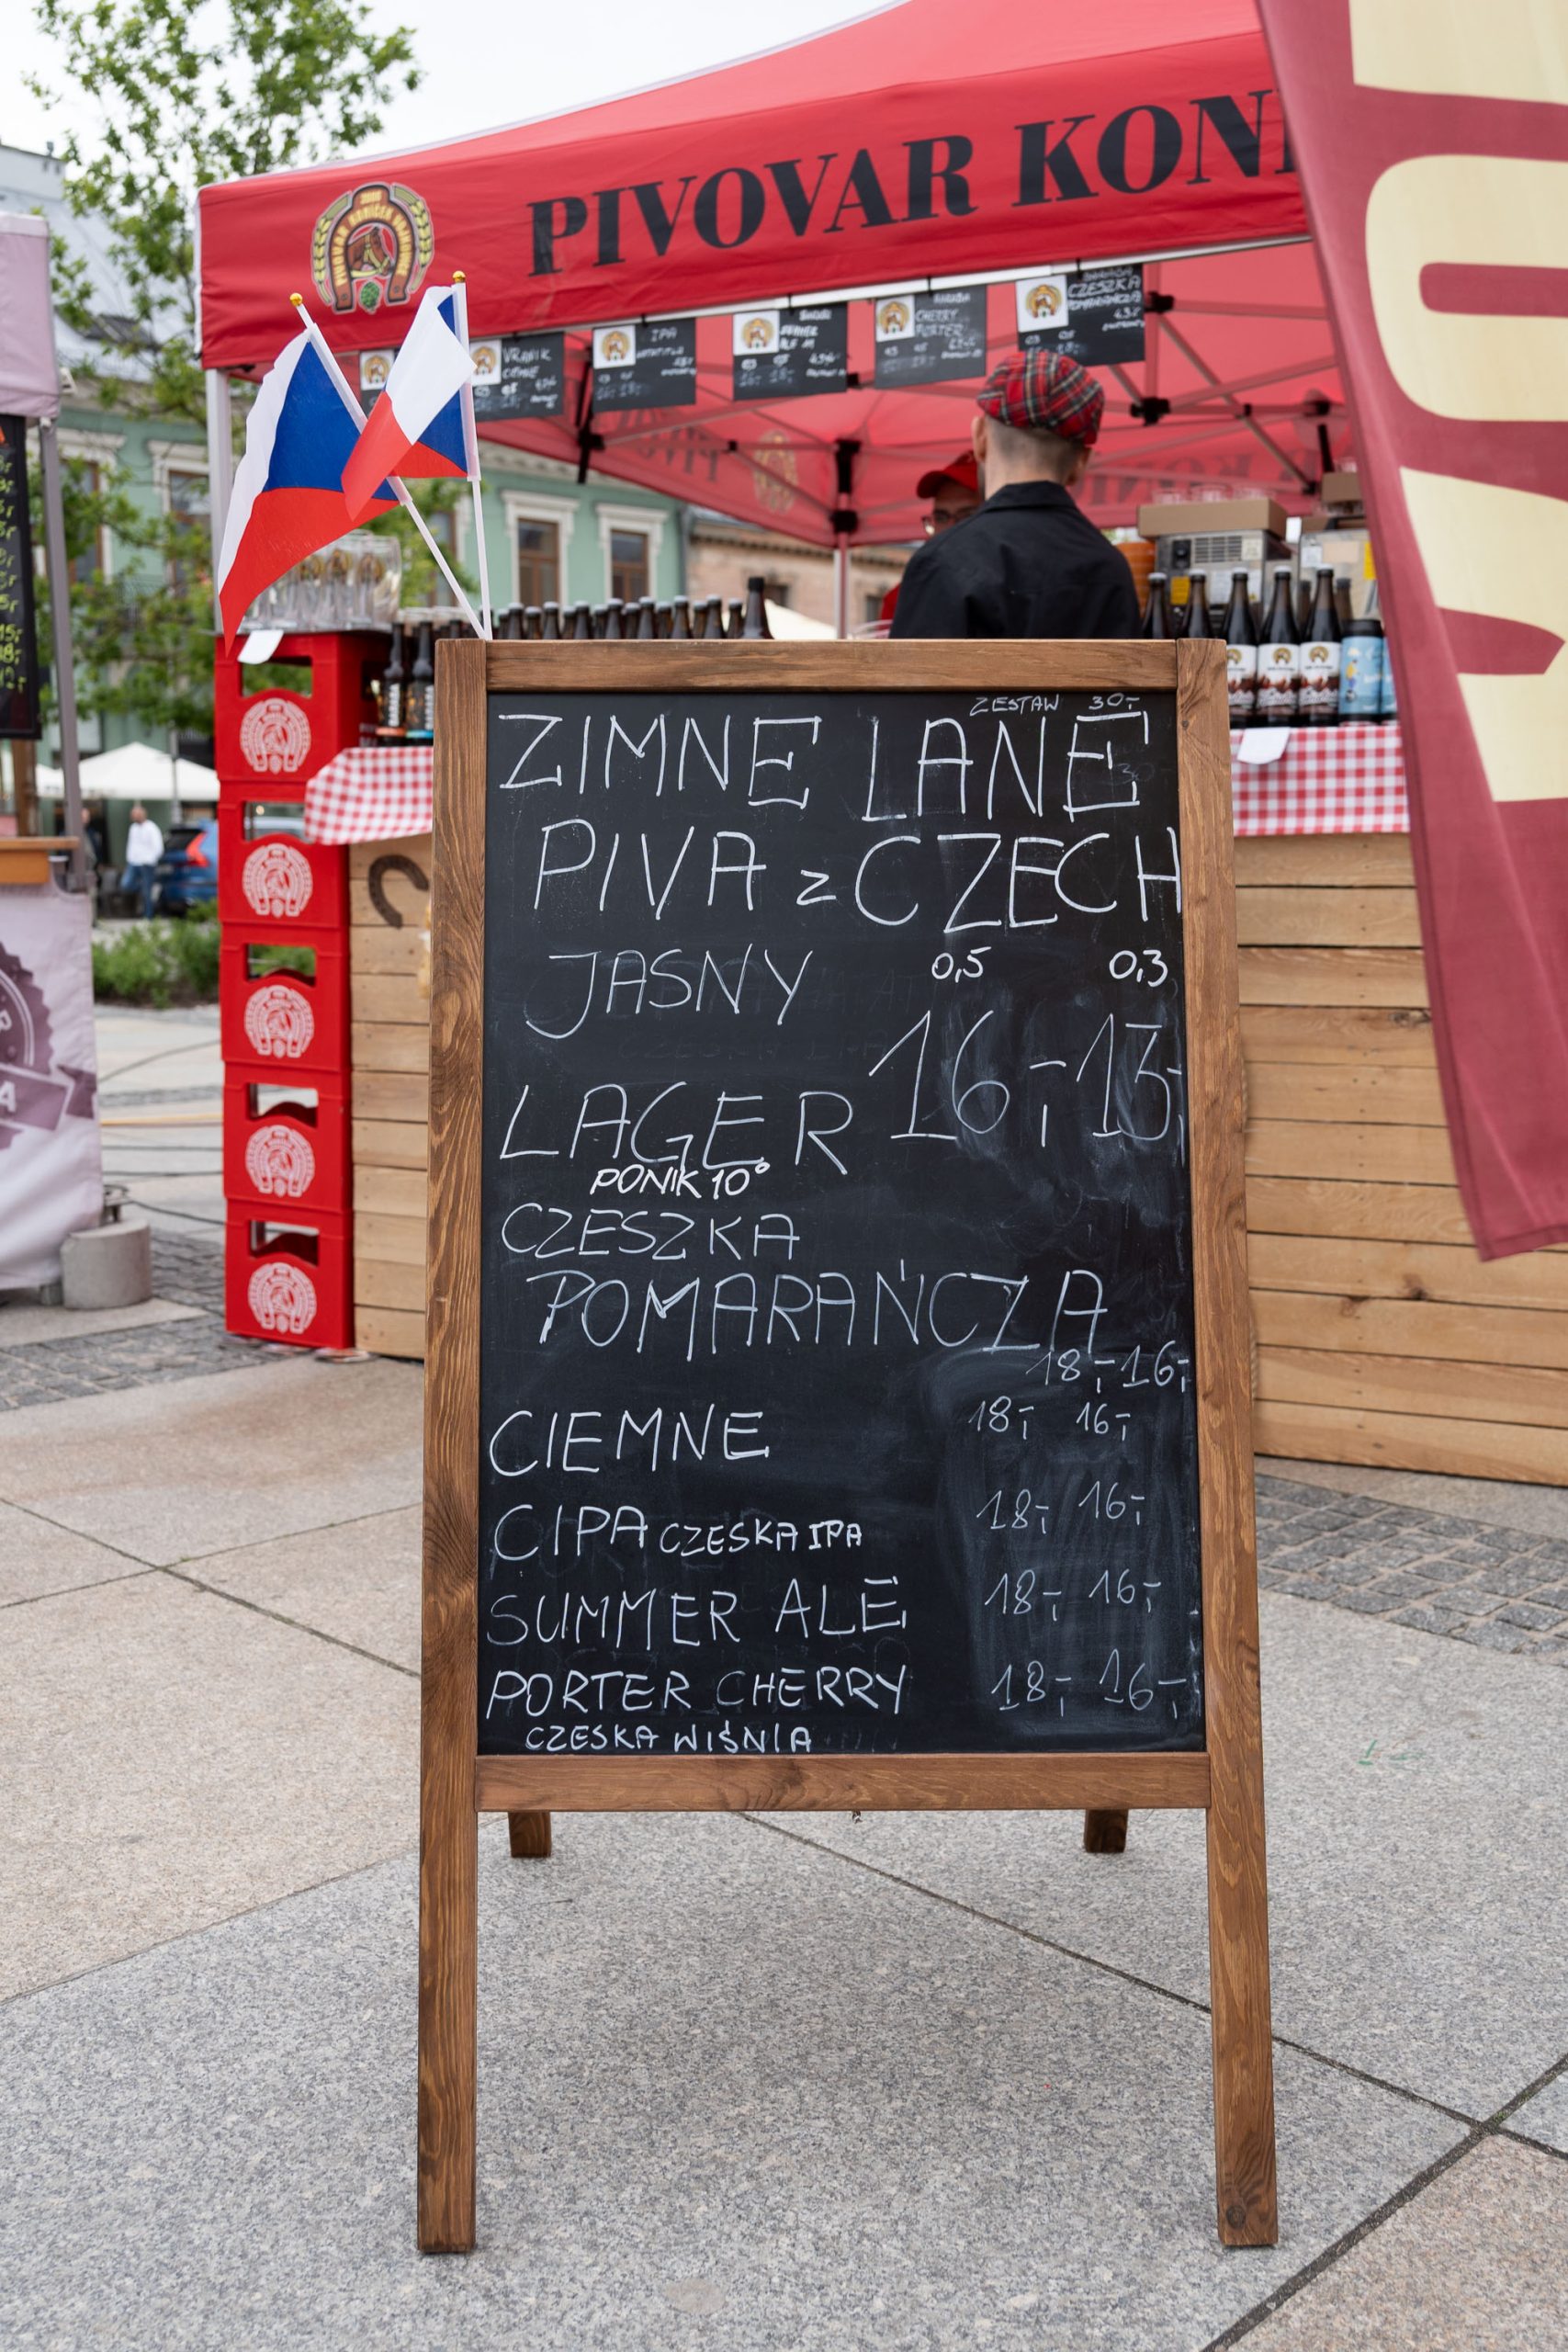 PIVOVAR KON
VRANIK
IPA
CHERRY
PORTER
CZESZKA
POMARAŃCZA
ZESTAW 30,-
ZIMNE LANE
PIVA z CZECH
JASNY 0,5 0,3
LAGER 16,- 15,-
PONIK 10°
CZESZKA
POMARAŃCZA
18,- 16,-
CIEMNE 18,- 16,-
CIPA CZESKA IPA 18,- 16,-
SUMMER ALE 18,- 16,-
PORTER CHERRY 18,- 16,-
CZESKA WIŚNIA